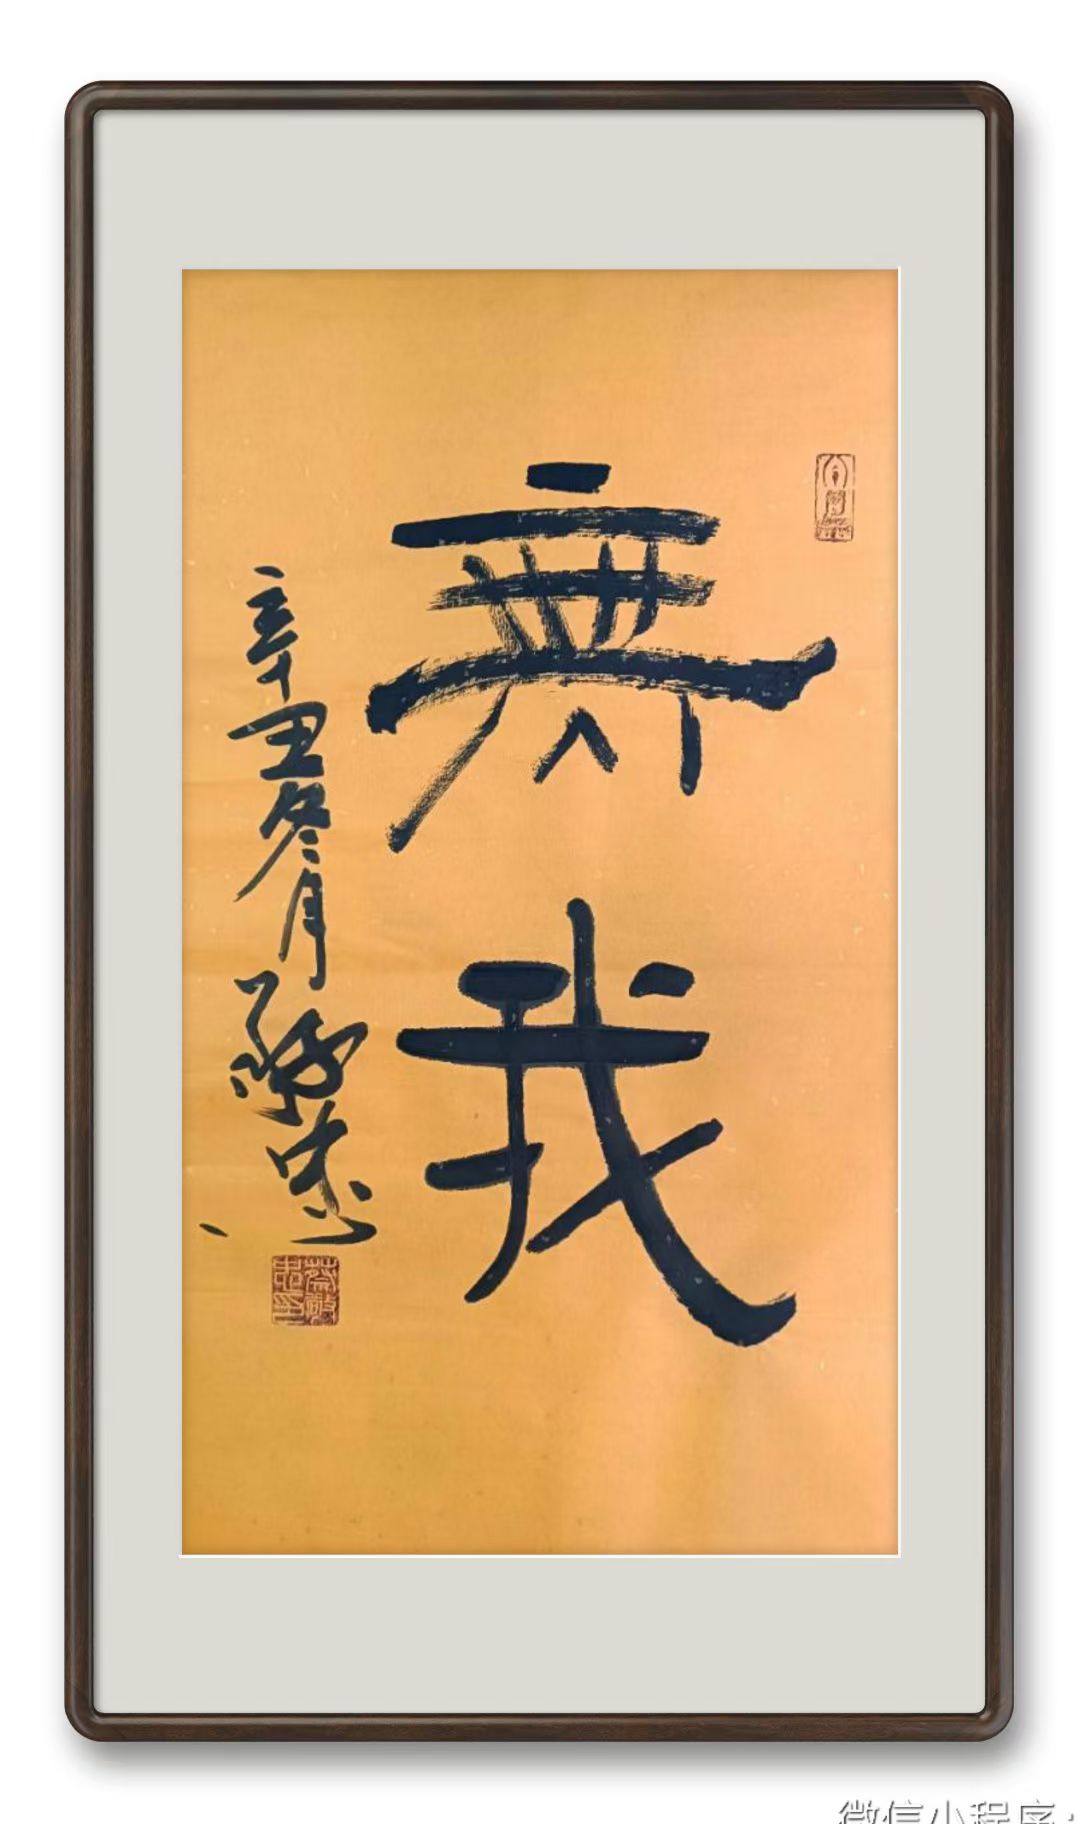 無我
辛丑冬月
微信小程序: